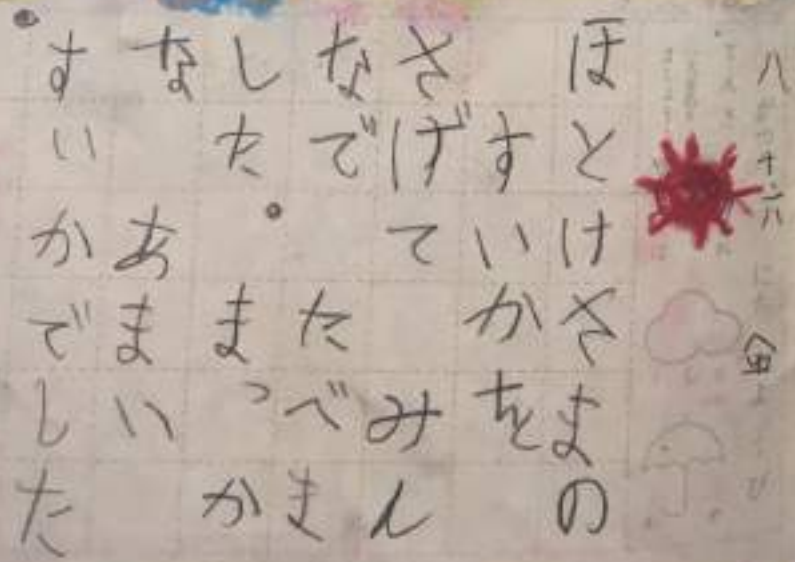 八がつ十八にち 金ようび
ほとけさまの
すいかを
さげて みん
なで たべま
した。まっか
な あまい
すいかでした
。